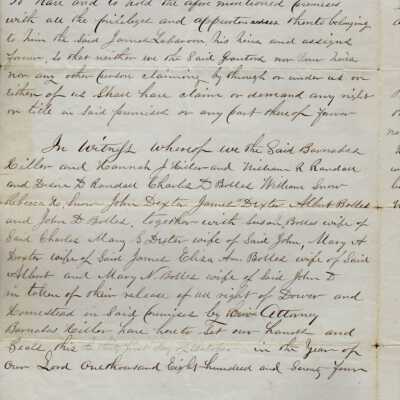 To Have and to hold the afore mentioned premises
with all the privileges and appurtenances thereto belonging
to him the said James Lebaron his heirs and assigns
forever, So that neither we the Said Grantors nor our heirs
nor any other person claiming by through or under us or
either of us Shall have claim or demand any right
or title in Said premises or any part thereof forever
In Witness whereof we the Said Barnabas
Hiller and Hannah J Hiller and William R Randall
and D. Randall Charles D Bolles William Snow
Rebecca H. Snow John Dexter James Dexter Albert Bolles
and John D Bolles, together with Susan Bolles wife of
Said Charles Mary S Dexter wife of Said John, Mary A
Dexter wife of Said James Eliza Ann Bolles wife of Said
Albert and Mary N Bolles wife of Said John D
in token of their release of all right of Dower and
Homestead in Said premises by Attorney
Barnabas Hiller have hereto Set our hands and
Seals this thirty first day of October in the Year of
our Lord One thousand Eight hundred and Seventy Four